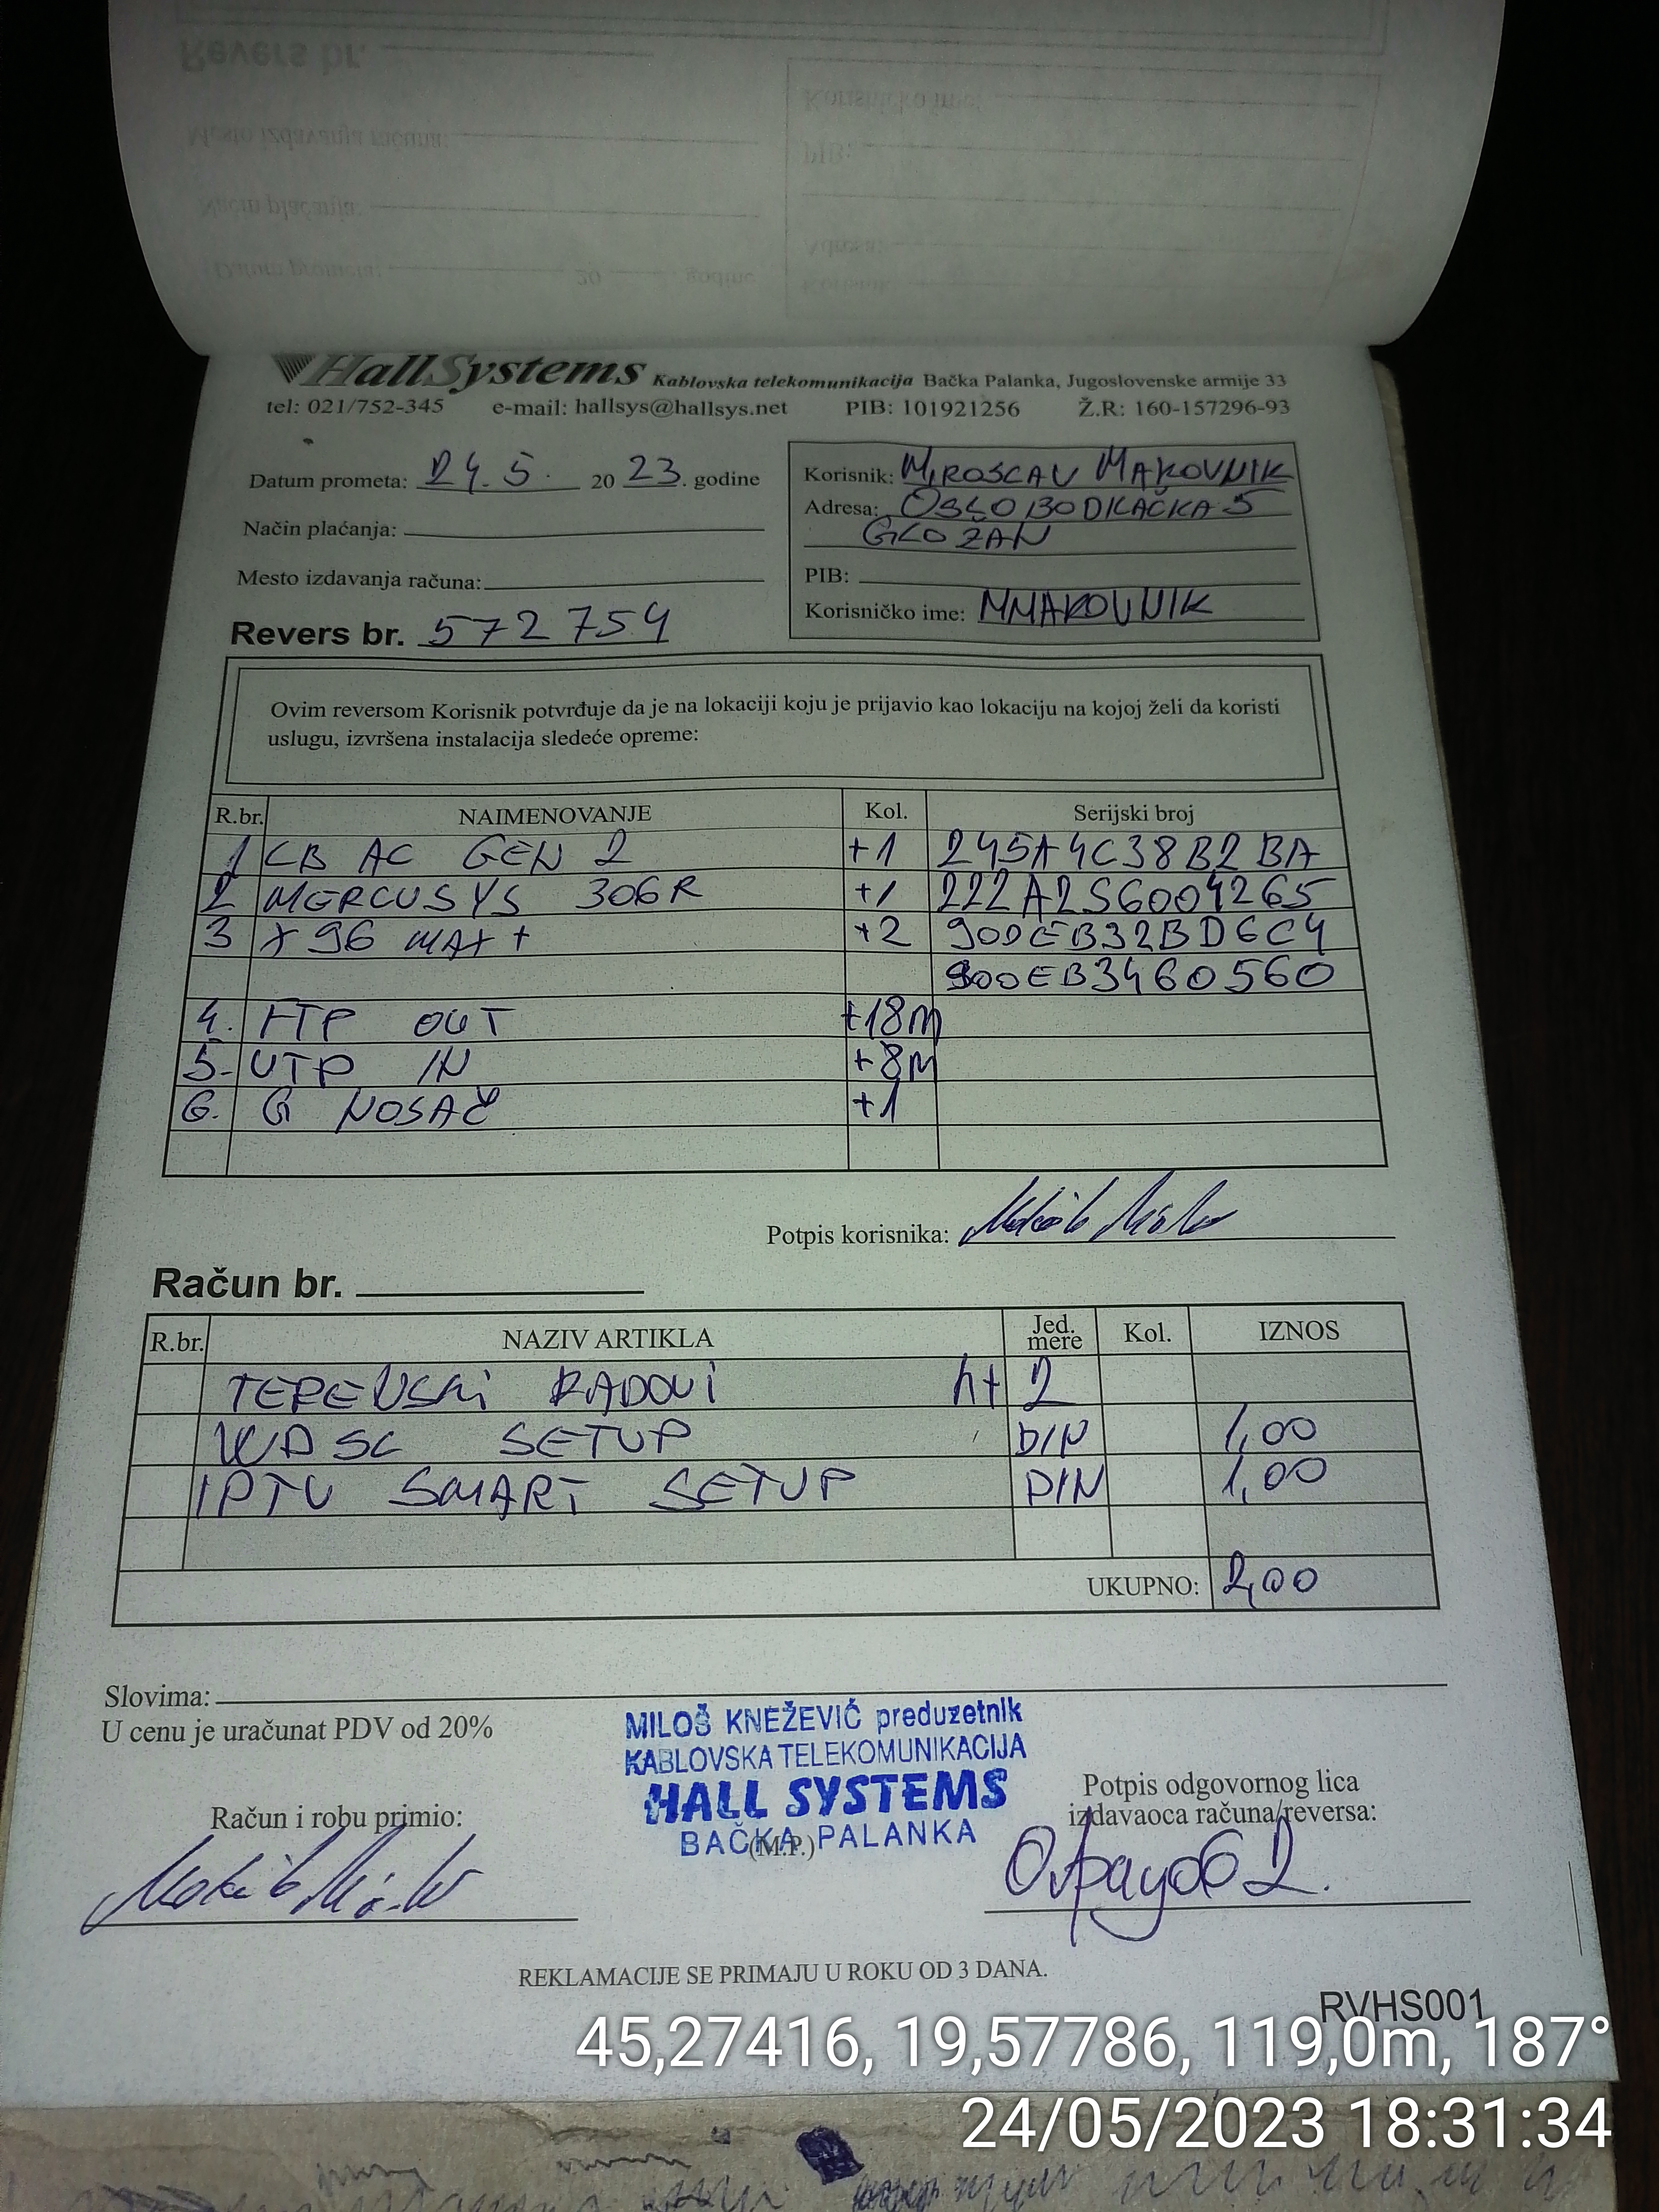 HallSystems Kablovska telekomunikacija Bačka Palanka, Jugoslovenske armije 33
tel: 021/752-345 e-mail: hallsys@hallsys.net PIB: 101921256 Ž.R: 160-157296-93
Datum prometa: 24.5. 20 23. godine
Način plaćanja:
Mesto izdavanja računa:
Revers br. 572754
Korisnik: MIROSLAV MAKOVNIK
Adresa: OSLOBODILAČKA 5
GLOŽAN
PIB:
Korisničko ime: MMAKOVNIK
Ovim reversom Korisnik potvrđuje da je na lokaciji koju je prijavio kao lokaciju na kojoj želi da koristi
uslugu, izvršena instalacija sledeće opreme:
R.br. NAIMENOVANJE Kol. Serijski broj
1 LB AC GEN 2 +1 245A4C38B2BA
2 MERCUSYS 306R +1 222A2S6004265
3 X96 MAX+ +2 90DEB32BD6C4
900EB3460560
4. FTP OUT +18m
5. UTP IN +8m
6. G NOSAČ +1
Potpis korisnika:
Račun br.
R.br. NAZIV ARTIKLA Jed. mere Kol. IZNOS
TERENSKI RADOVI h+ 2
WDSL SETUP DIN 1,00
IPTV SMART SETUP DIN 1,00
UKUPNO: 2,00
Slovima:
U cenu je uračunat PDV od 20%
MILOŠ KNEŽEVIĆ preduzetnik
KABLOVSKA TELEKOMUNIKACIJA
HALL SYSTEMS
BAČKA PALANKA
(M.P.)
Račun i robu primio:
Potpis odgovornog lica
izdavaoca računa/reversa:
REKLAMACIJE SE PRIMAJU U ROKU OD 3 DANA.
RVHS001
45,27416, 19,57786, 119,0m, 187°
24/05/2023 18:31:34